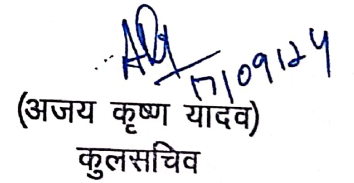 17/09/24
(अजय कृष्ण यादव)
कुलसचिव